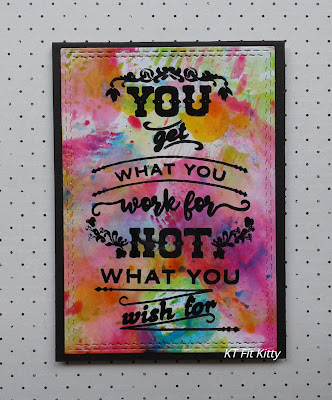 YOU
get
WHAT YOU
work for
NOT
WHAT YOU
wish for
KT Fit Kitty